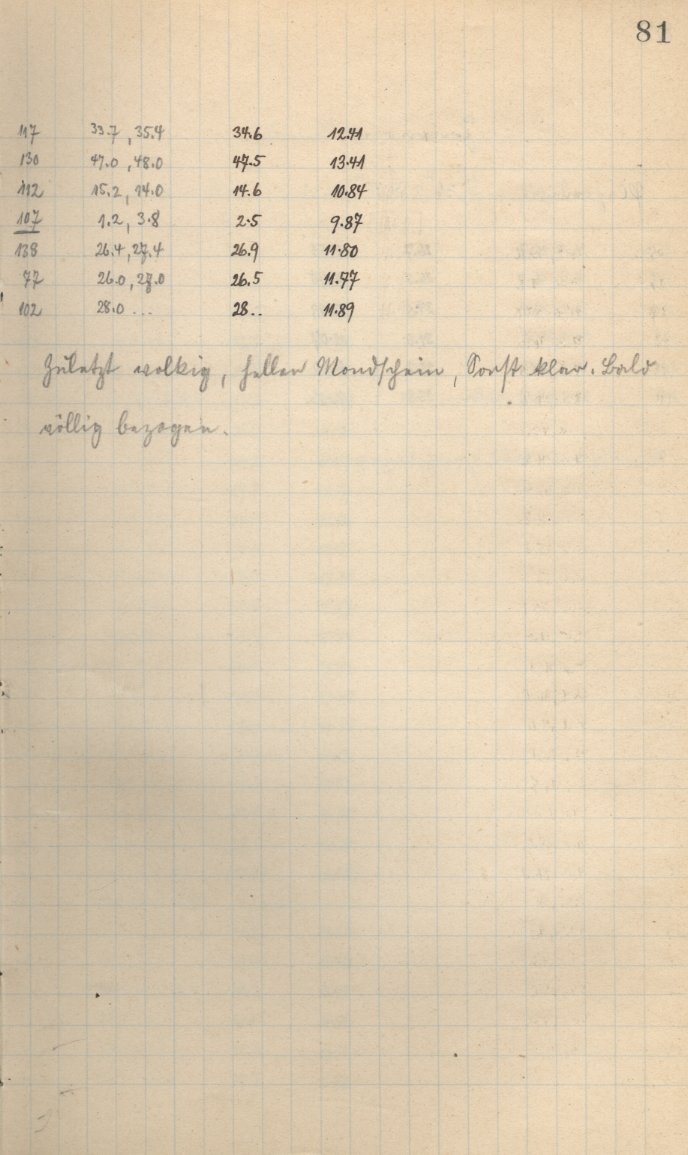 81
117 33.7, 35.4 34.6 12.41
130 47.0, 48.0 47.5 13.41
112 15.2, 14.0 14.6 10.84
107 1.2, 3.8 2.5 9.87
138 26.4, 27.4 26.9 11.80
77 26.0, 27.0 26.5 11.77
102 28.0 ... 28.. 11.89
Zuletzt wolkig, heller Mondschein, Sonst klar. Bald
völlig bezogen.